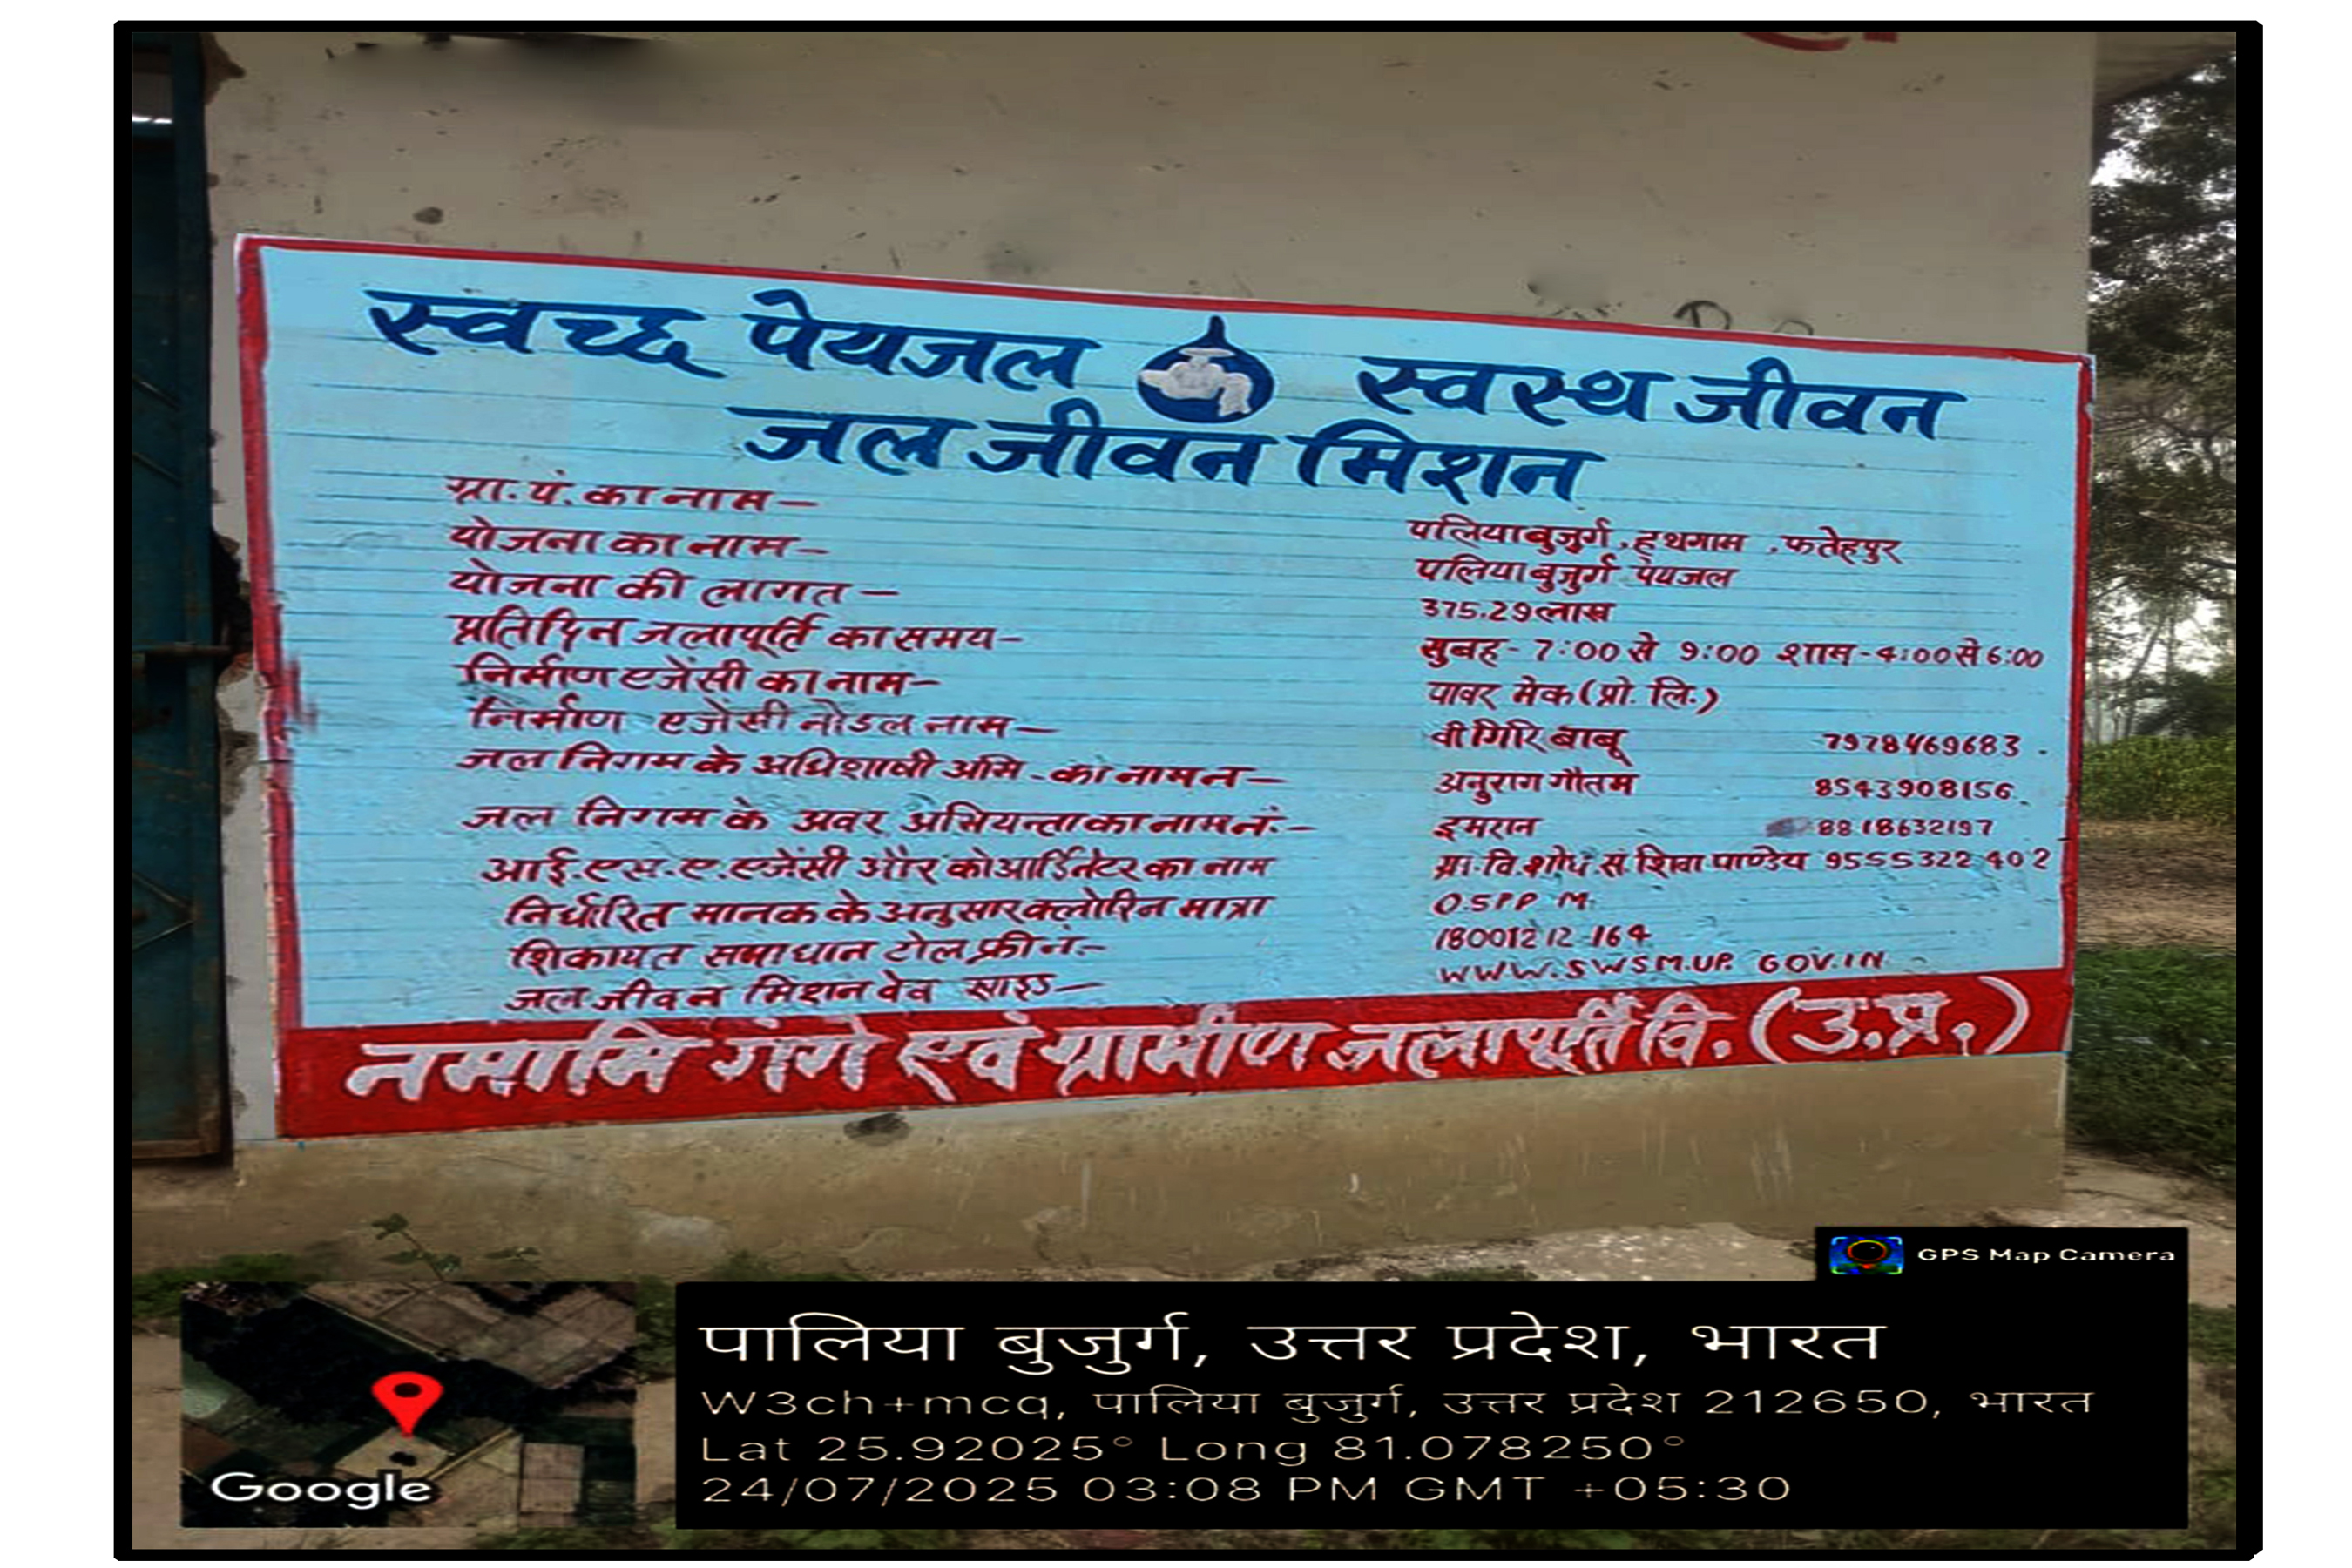 स्वच्छ पेयजल स्वस्थ जीवन
जल जीवन मिशन
ग्रा.पं. का नाम – पलिया बुजुर्ग, हथगाम, फतेहपुर
योजना का नाम – पलिया बुजुर्ग पेयजल
योजना की लागत – 375.29 लाख
प्रतिदिन जलापूर्ति का समय – सुबह - 7:00 से 9:00 शाम - 4:00 से 6:00
निर्माण एजेंसी का नाम – पावर मेक (प्रो. लि.)
निर्माण एजेंसी नोडल नाम – वी गिरि बाबू 7978469683
जल निगम के अधिशाषी अभि. का नाम न – अनुराग गौतम 8543908156
जल निगम के अवर अभियन्ता का नाम नं. – इमरान 8818632197
आई.एस.ए. एजेंसी और कोआर्डिनेटर का नाम ग्रा. वि. शोध सं. शिवा पाण्डेय 9555322402
निर्धारित मानक के अनुसार क्लोरिन मात्रा 0.5PP M.
शिकायत समाधान टोल फ्री नं. – 18001212-164
जल जीवन मिशन वेव साइड – WWW.SWSM.UP. GOV.IN
नमामि गंगे एवं ग्रामीण जलापूर्ति वि. (उ.प्र.)
GPS Map Camera
पालिया बुजुर्ग, उत्तर प्रदेश, भारत
W3ch+mcq, पालिया बुजुर्ग, उत्तर प्रदेश 212650, भारत
Lat 25.92025° Long 81.078250°
24/07/2025 03:08 PM GMT +05:30
Google